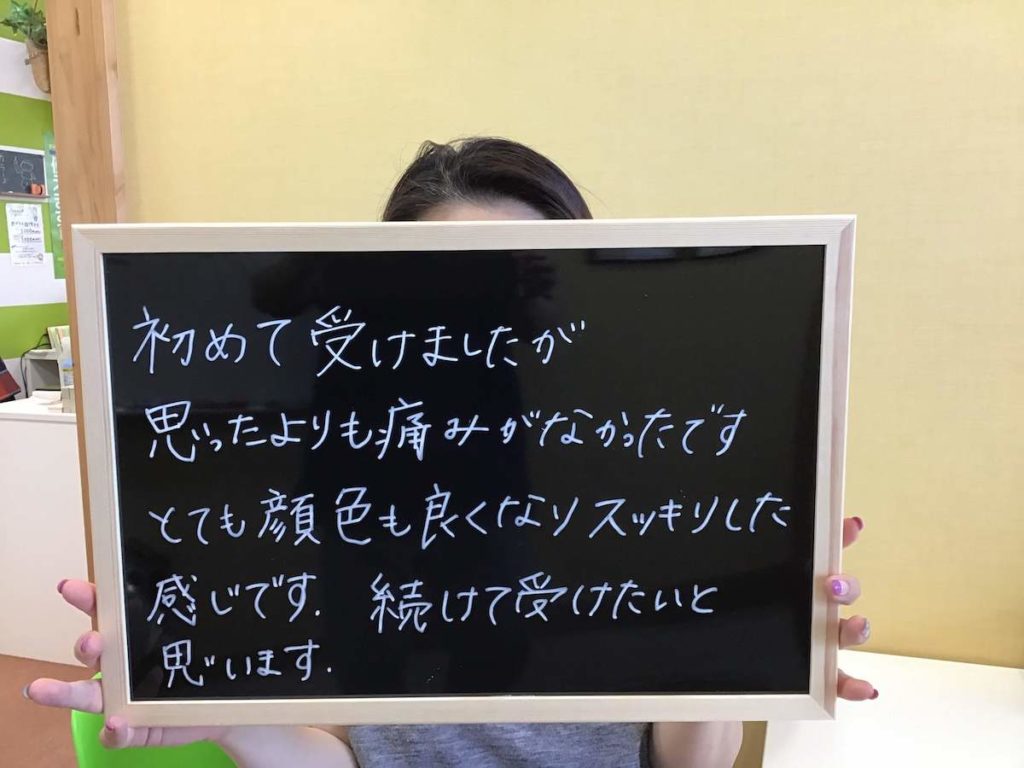 初めて受けましたが
思ったよりも痛みがなかったです
とても顔色も良くなりスッキリした
感じです. 続けて受けたいと
思います.